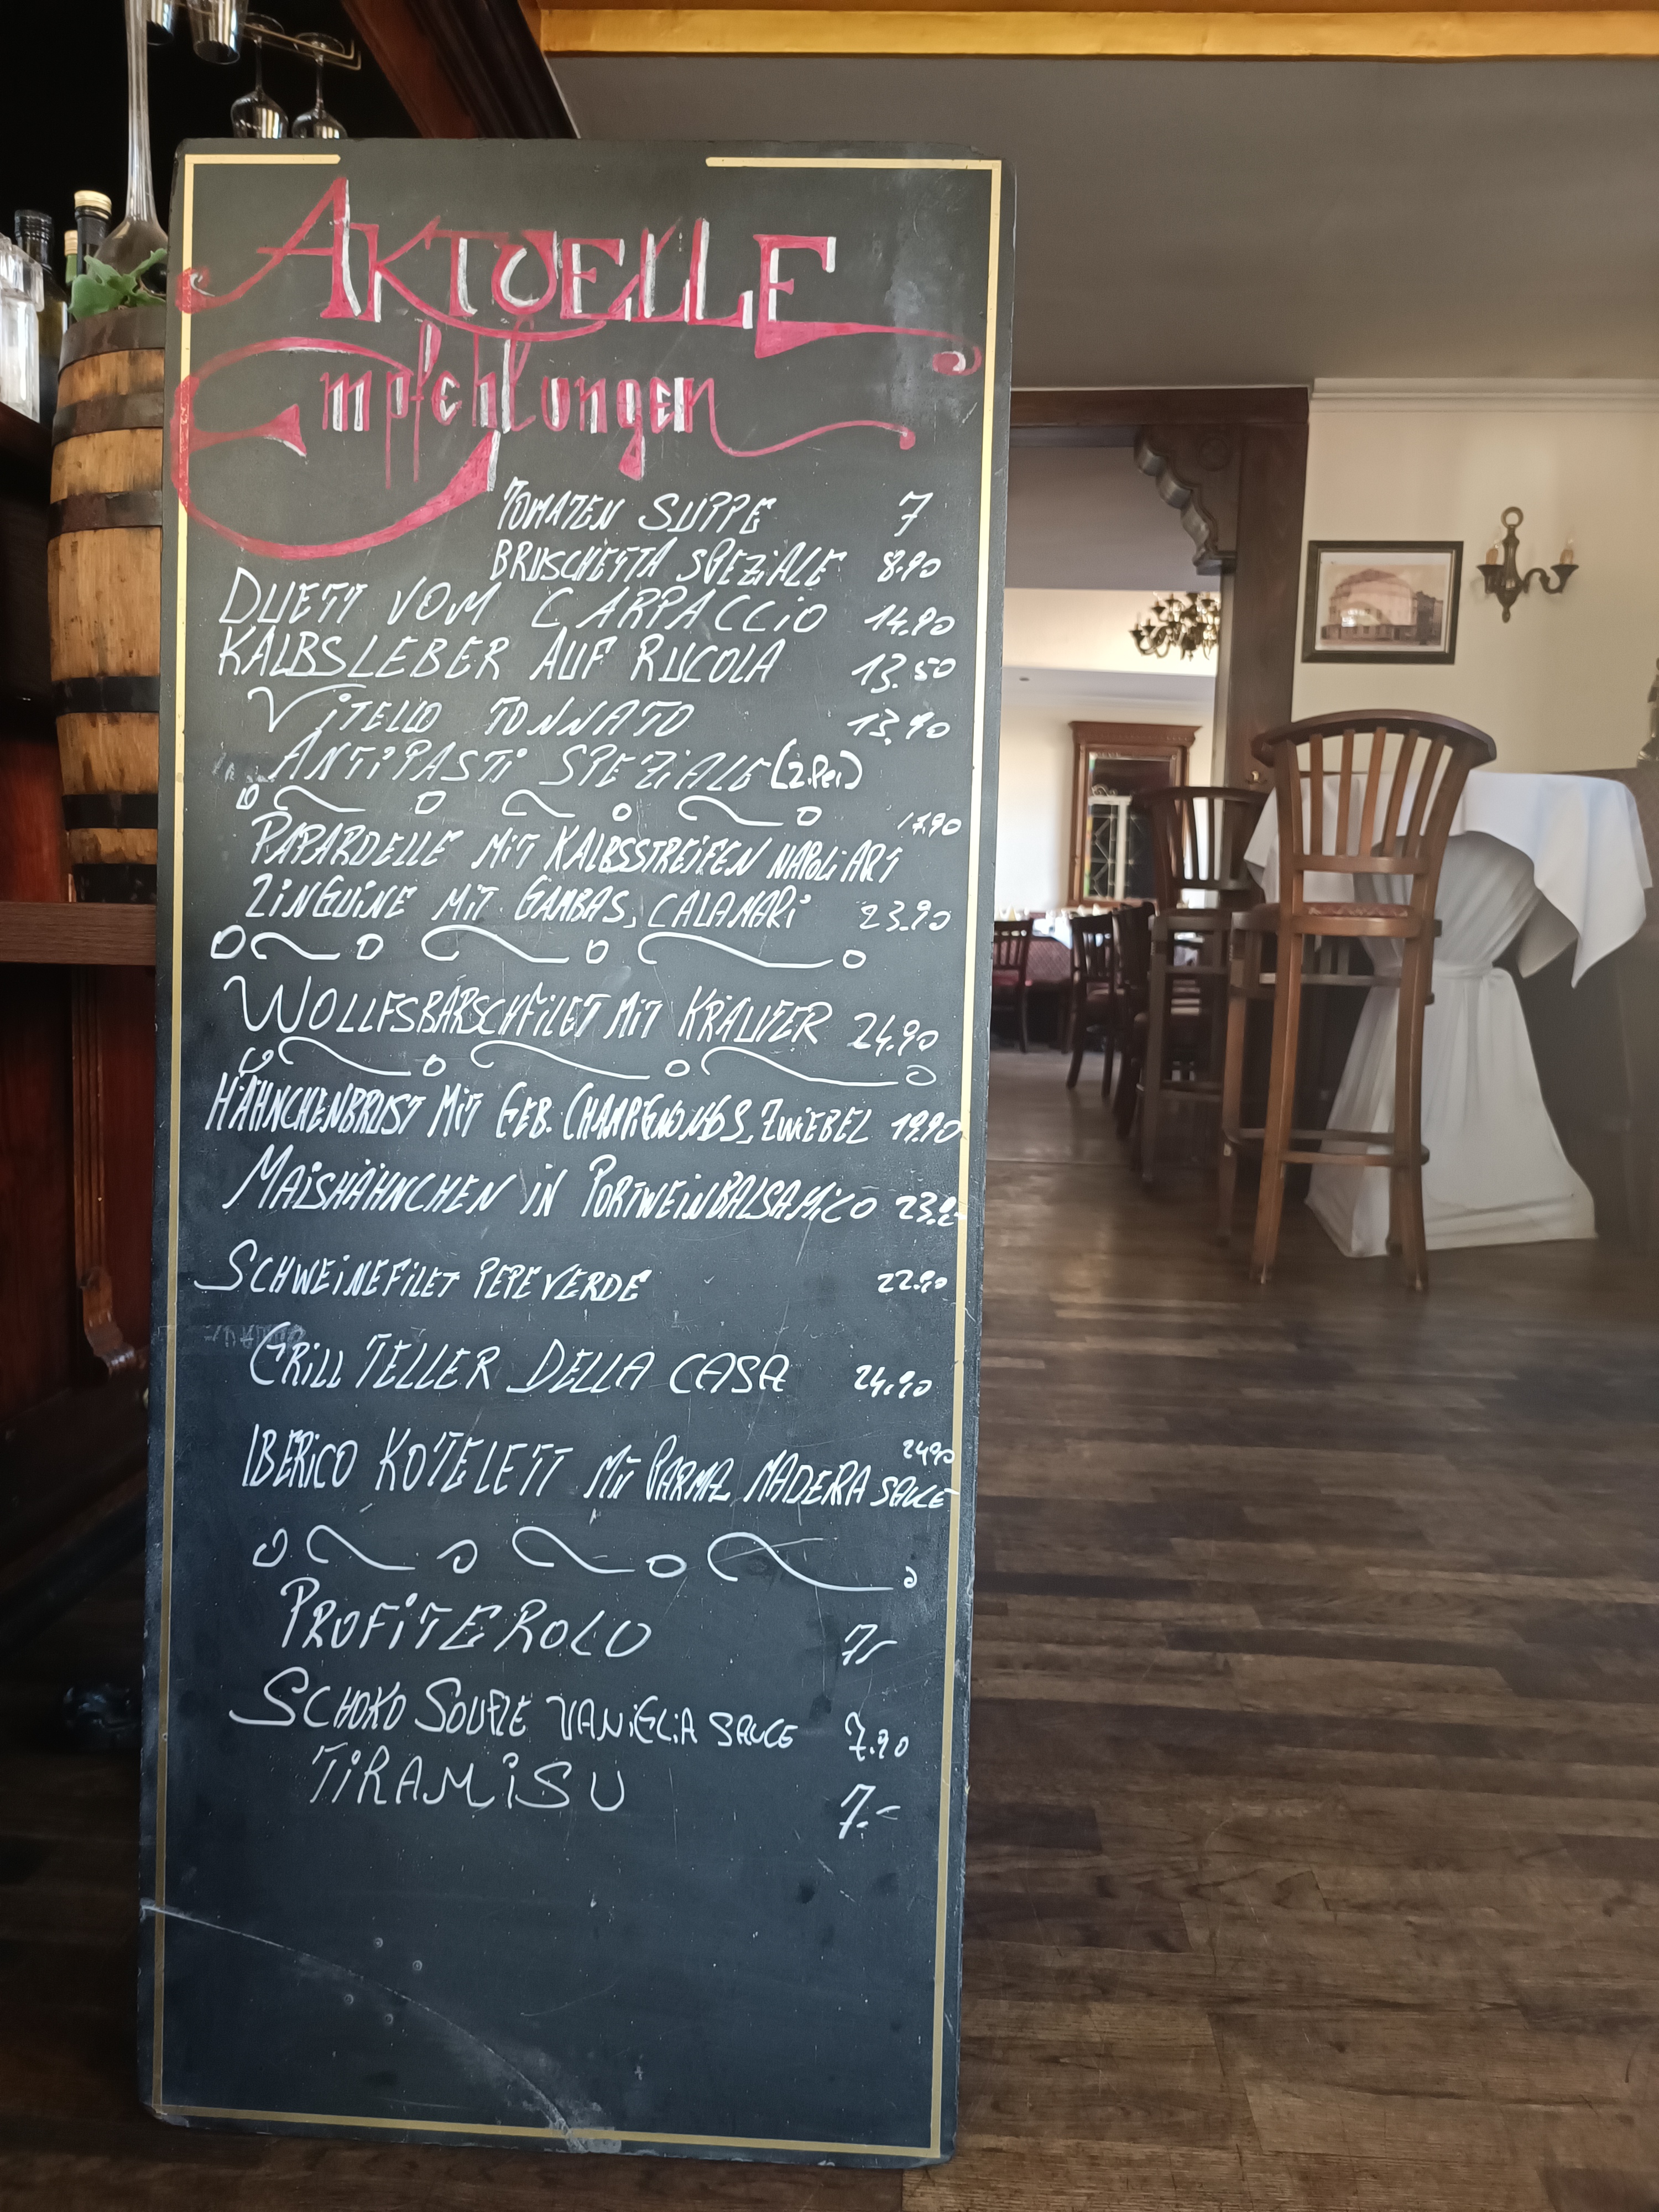 AKTUELLE
Empfehlungen
TOMATEN SUPPE 7
BRUSCHETTA SPEZiALE 8.90
DUETT VOM CARPACCiO 14.90
KALBSLEBER AUF RUCOLA 13.50
ViTELLO TONNATO 13.90
ANTiPASTi SPEZiALE (2.Per)
17.90
PAPARDELLE MiT KALBSSTREiFEN NAPOLi ART
LiNGUiNE MiT GAMBAS, CALAMARi 23.90
WOLLFSBARSCHFiLET MiT KRÄUTER 24.90
HÄHNCHENBRUST MiT GEB. CHAMPiGNONGS, ZWiEBEL 19.90
MAiSHÄHNCHEN iN PORTWEiNBALSAMiCO
SCHWEiNEFiLET PEPE VERDE 22.90
GRiLL TELLER DELLA CASA 24.90
24.90
IBERiCO KOTELETT MiT PARMA, MADEiRA SAUCE
PROFiTEROLO 7,-
SCHOKO SOUFLE VANiGLiA SAUCE 7.90
TiRAMiSU 7.-